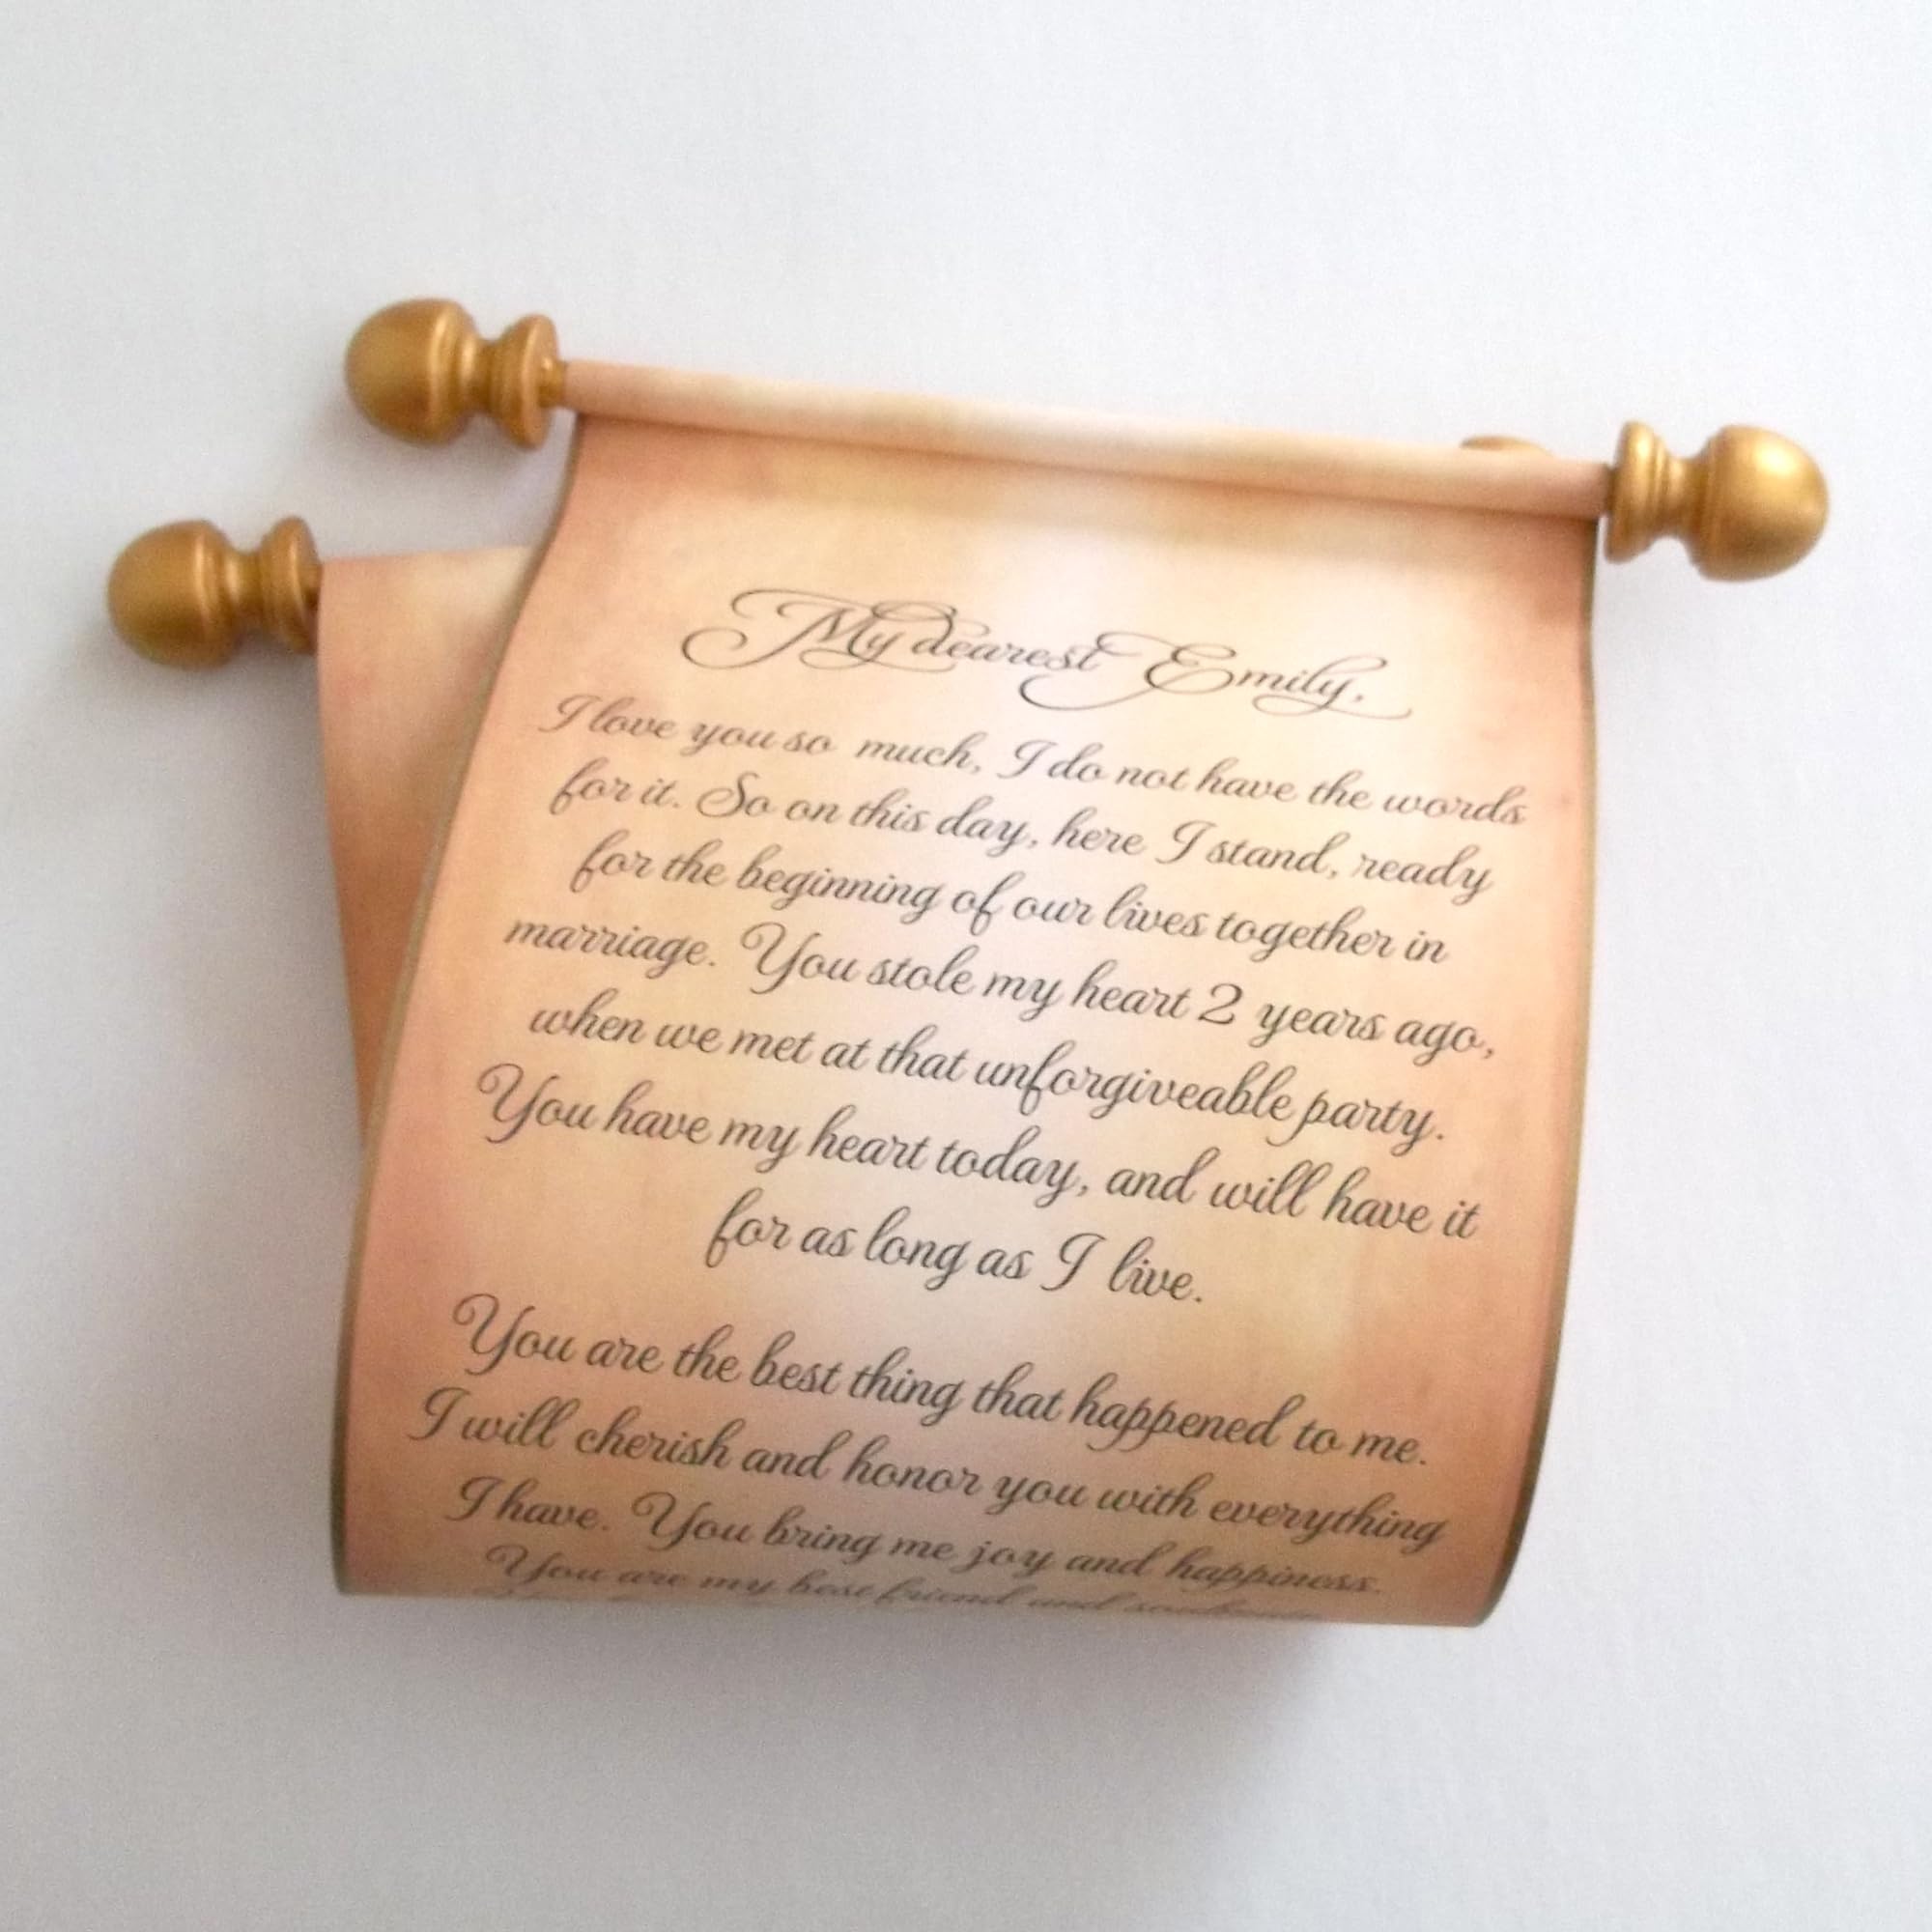 My dearest Emily,
I love you so much, I do not have the words
for it. So on this day, here I stand, ready
for the beginning of our lives together in
marriage. You stole my heart 2 years ago,
when we met at that unforgiveable party.
You have my heart today, and will have it
for as long as I live.
You are the best thing that happened to me.
I will cherish and honor you with everything
I have. You bring me joy and happiness.
You are my best friend and soulmate